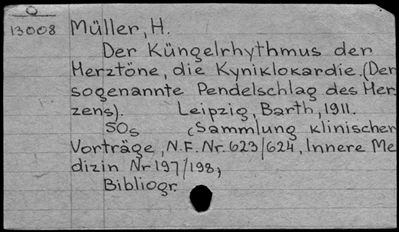 O
13008 Müller, H.
Der Küngelrhythmus der
Herztöne, die Kyniklokardie. (Der
sogenannte Pendelschlag des Her
zens). Leipzig, Barth, 1911.
50s (Sammlung klinischer
Vorträge, N.F. Nr. 623/624, Innere Me
dizin Nr 197/198)
Bibliogr